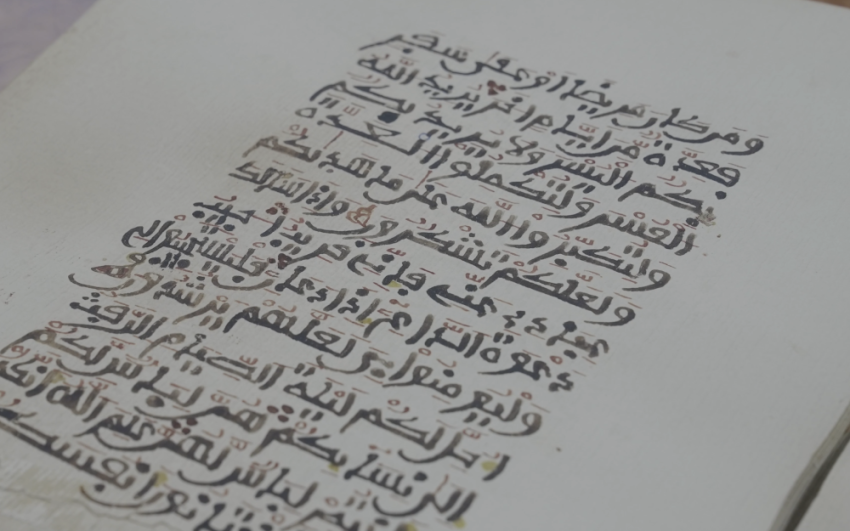 ومن كان مريضا أو على سفر
فعدة من أيام أخر يريد الله
بكم اليسر ولا يريد بكم
العسر ولتكملوا العدة
ولتكبروا الله على ما هديكم
ولعلكم تشكرون وإذا سألك
عبادي عني فإني قريب أجيب
دعوة الداع إذا دعان فليستجيبوا لي
وليومنوا بي لعلهم يرشدون
أحل لكم ليلة الصيام الرفث
إلى نسائكم هن لباس لكم
وأنتم لباس لهن علم الله أنكم
كنتم تختانون أنفسكم